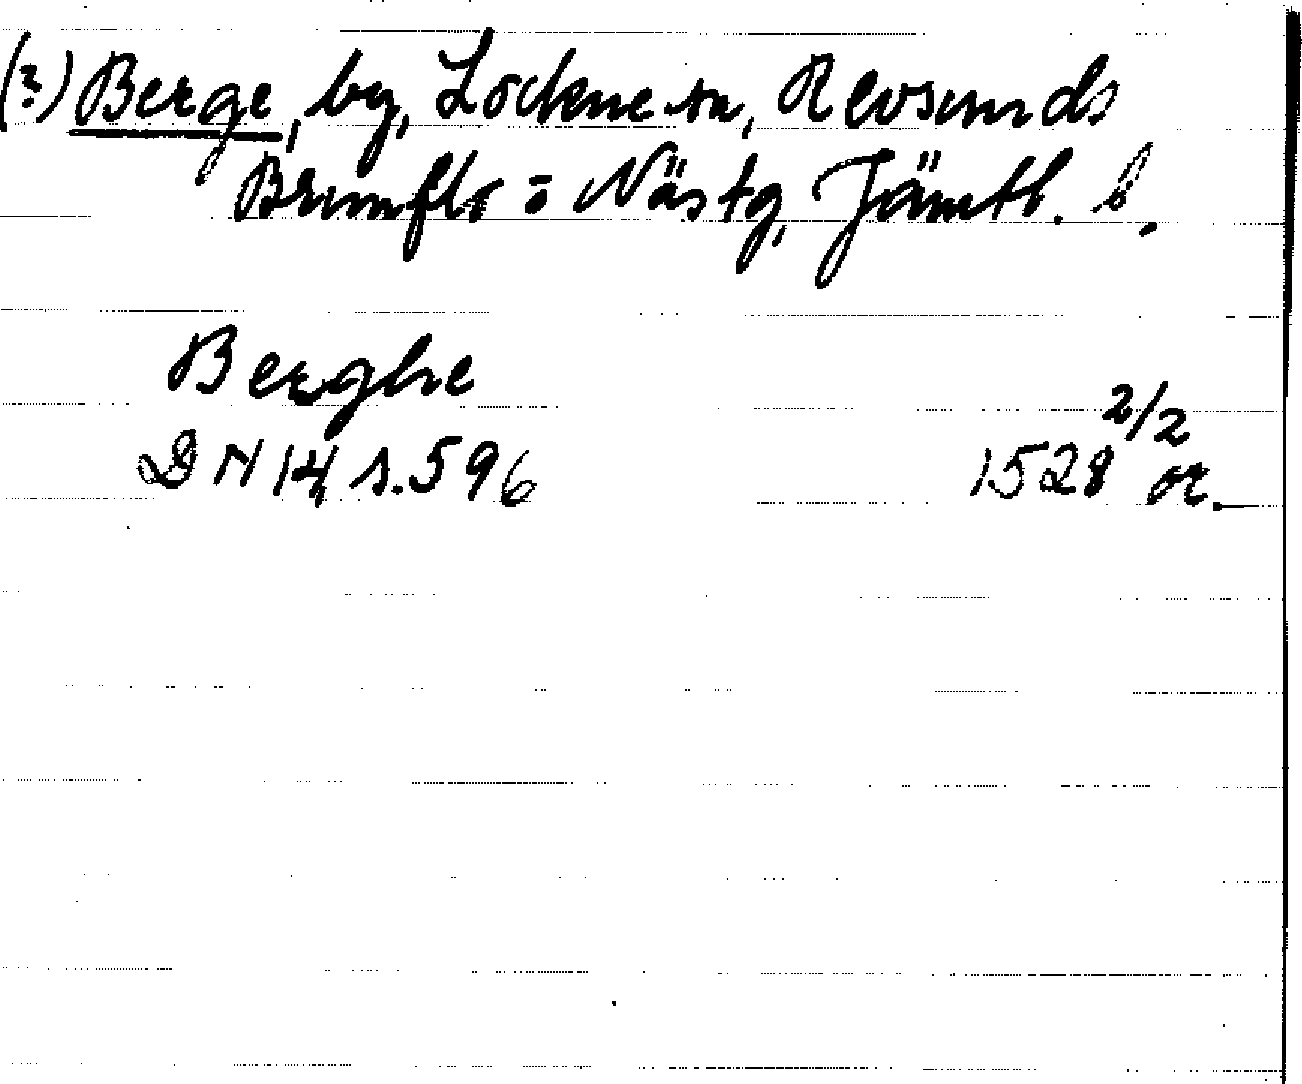 (?) Berge, by, Lockne sn, Revsunds
Brunflo o Näs tg, Jämtl. l.
Berghe
DN 14 s. 596 1528 2/2 or.